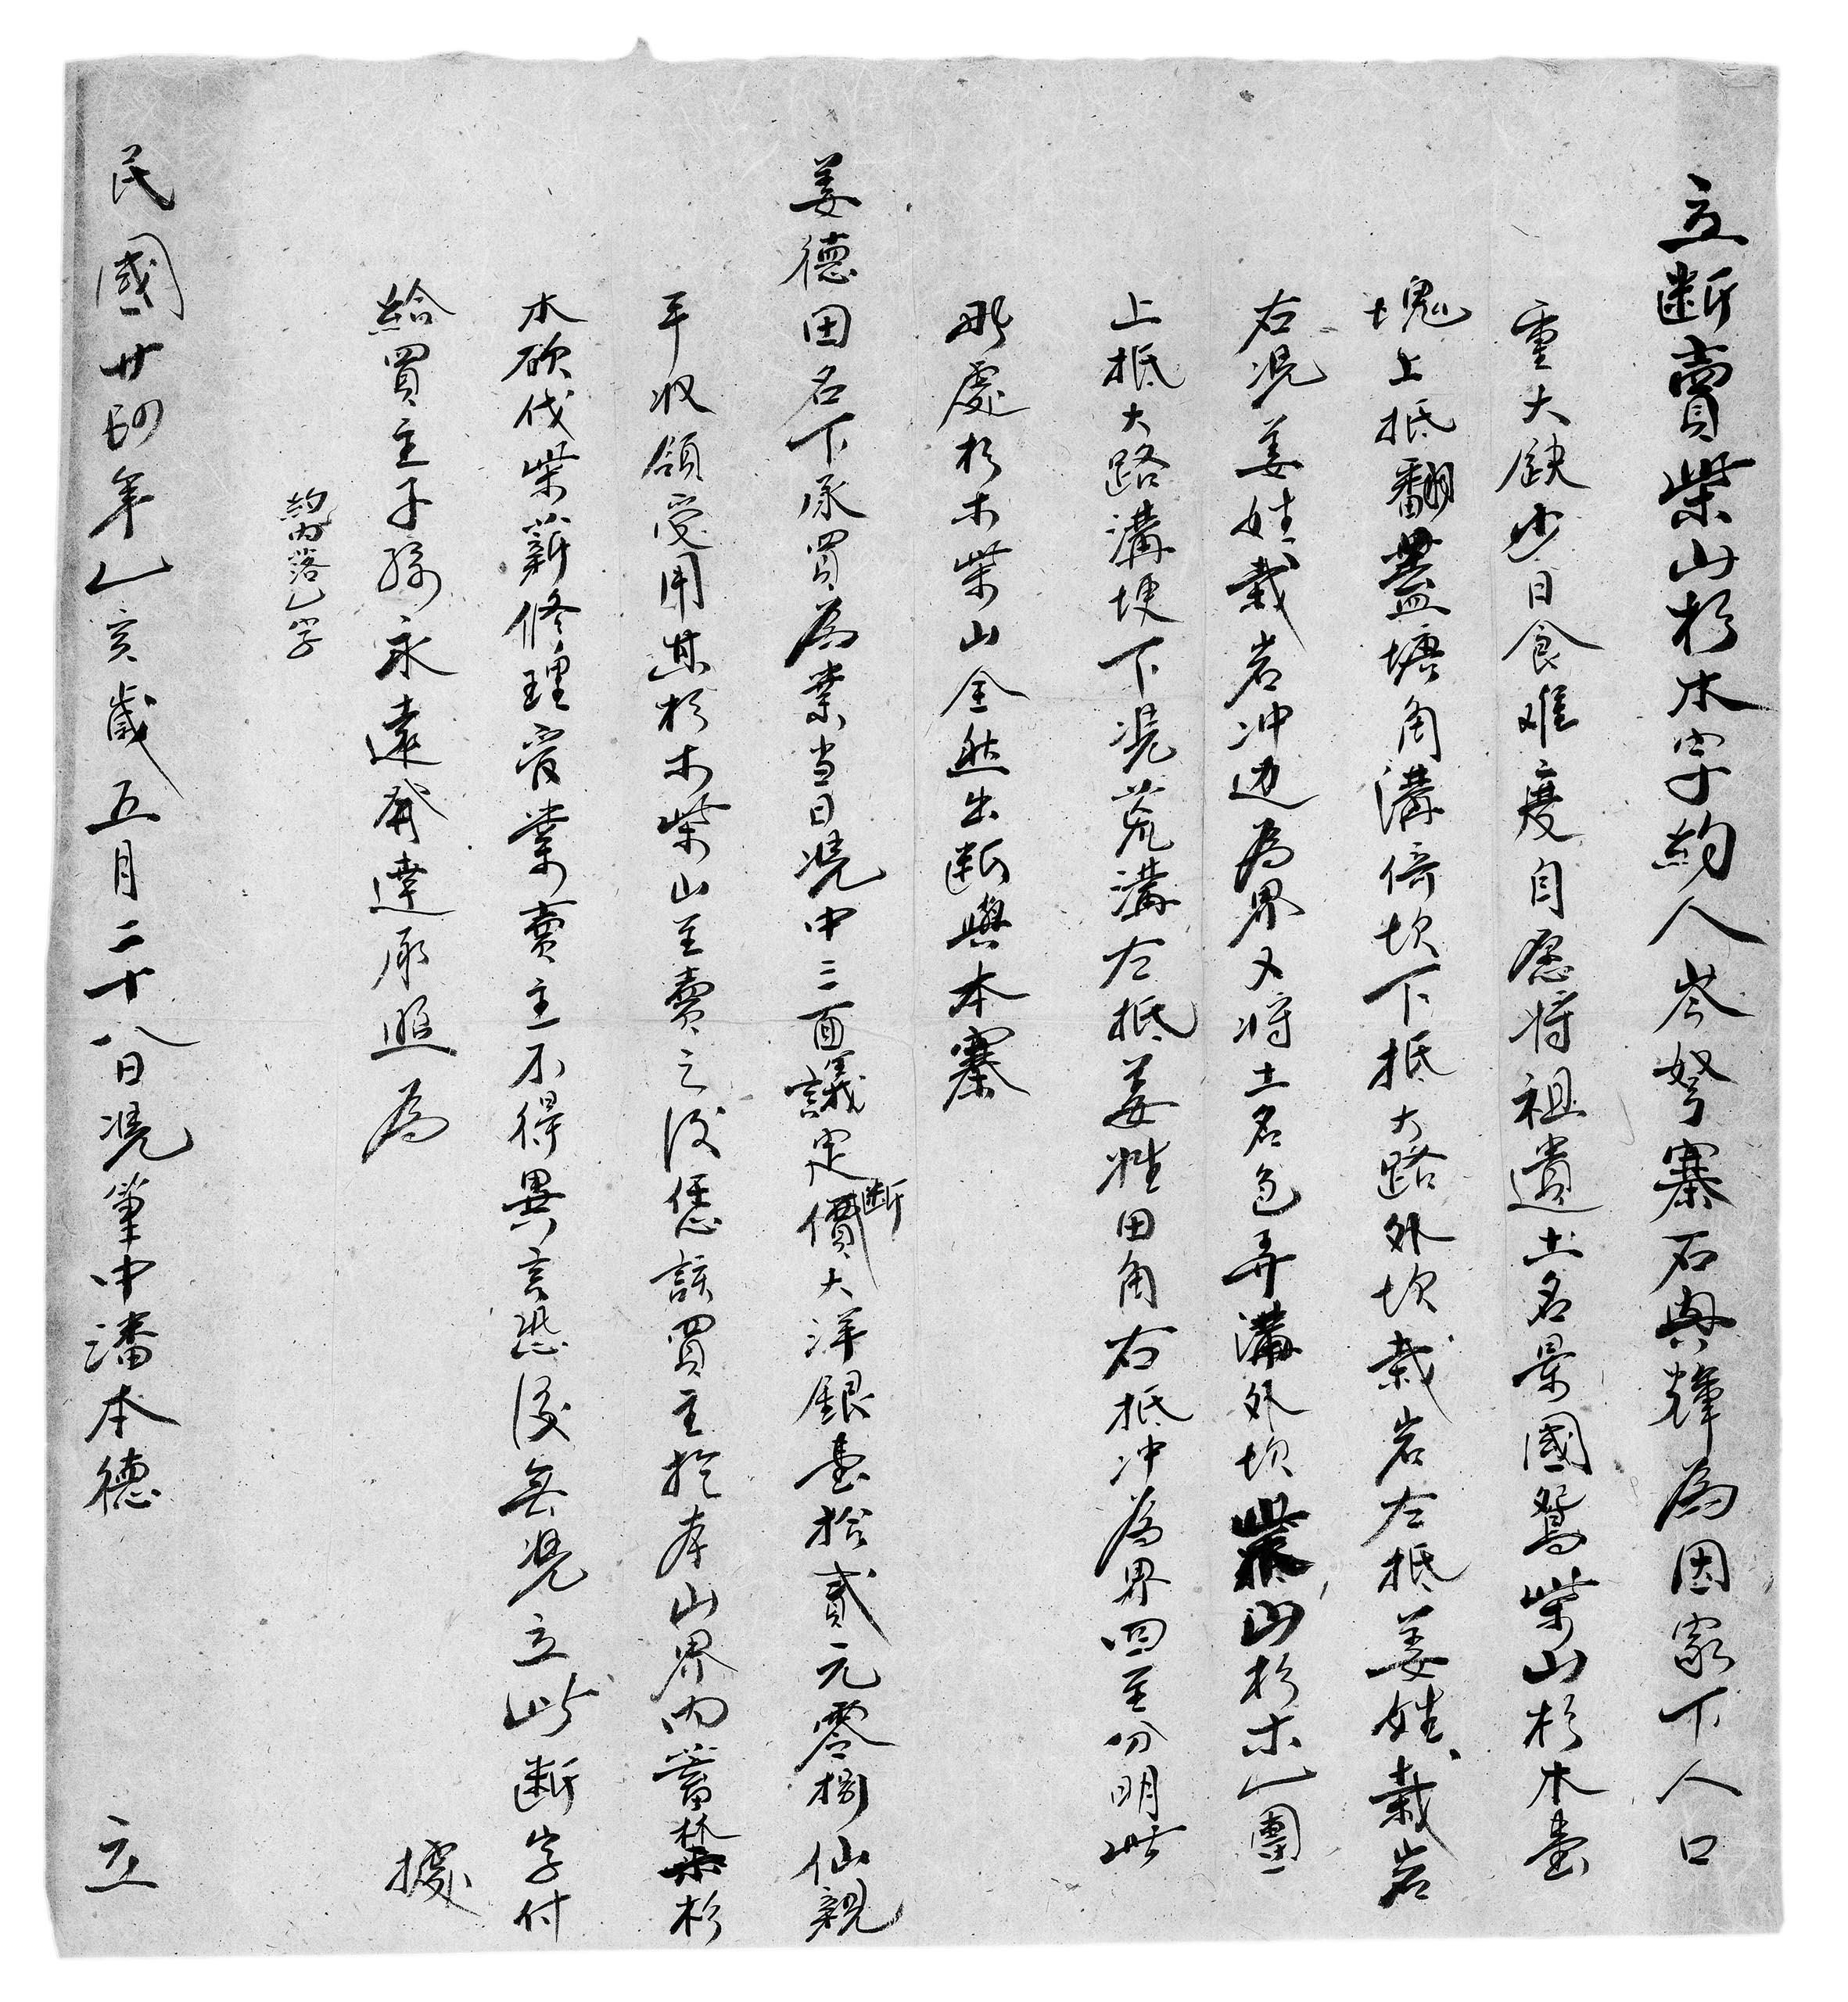 立断賣柴山杉木字約人岑孥寨石典輝為因家下人口
重大缺少日食难度自愿将祖遺土名景國鴛柴山杉木壹
塊上抵翻盖塘角溝倚坎下抵大路外坎栽岩左抵姜姓栽岩
右凭姜姓栽岩冲边為界又将土名包弄溝外坎柴山杉木一團
上抵大路溝埂下凭荒溝左抵姜姓田角右抵冲為界四至分明此
貳處杉木柴山全然出断與本寨
姜德田名下承買為業当日凭中三面議定断價大洋銀壹拾貳元零捌仙親
手收領受用其杉木柴山至賣之後任憑該買主於本山界内蓄禁杉
木砍伐柴薪修理管業賣主不得異言恐後無凭立此断字付
給買主子孫永遠發達承照為 據
約内落一字
民國廿四年乙亥歲五月二十八日凭筆中潘本德 立